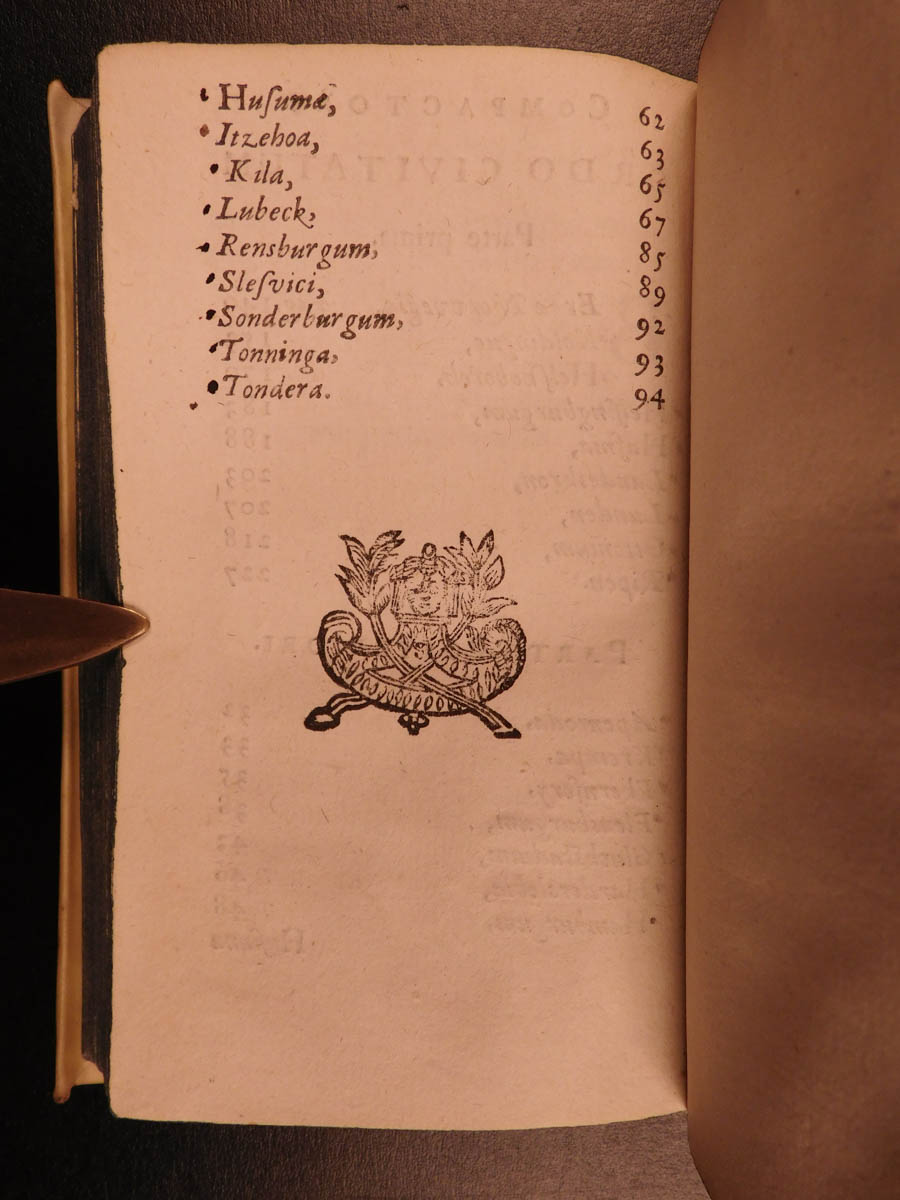 Huſumæ, 62
Itzehoa, 63
Kila, 65
Lubeck, 67
Rensburgum, 85
Sleſvici, 89
Sonderburgum, 92
Tonninga, 93
Tondera. 94